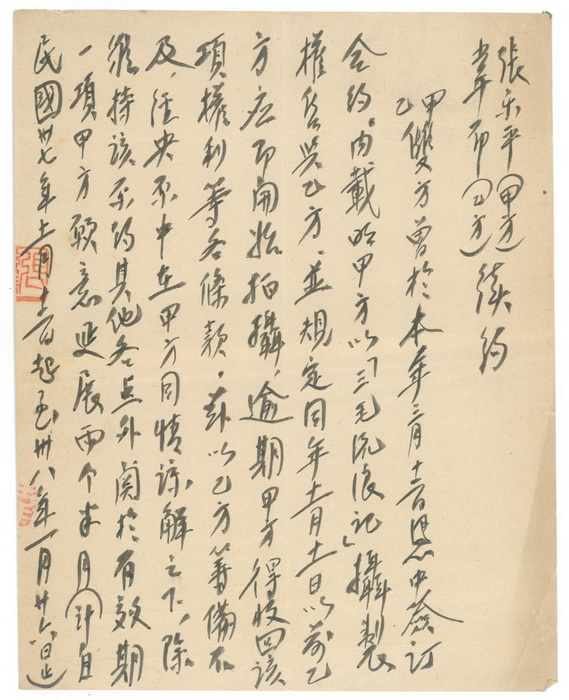 張乐平（甲方）
韋布（乙方） 續約
甲乙雙方曾於本年三月十二日憑中簽訂
合約。內載明甲方以「三毛流浪記」攝製
權售與乙方，並規定同年十一月十一日以前乙
方应即開始拍攝，逾期甲方得收回該
項權利等各條款。茲以乙方籌備不
及，徑央原中在甲方同情諒解之下，除
維持該原約其他各点外関於有效期
一項甲方願意延展兩个半月（計自
民國卅七年十一月十二日起至卅八年一月廿六日止）